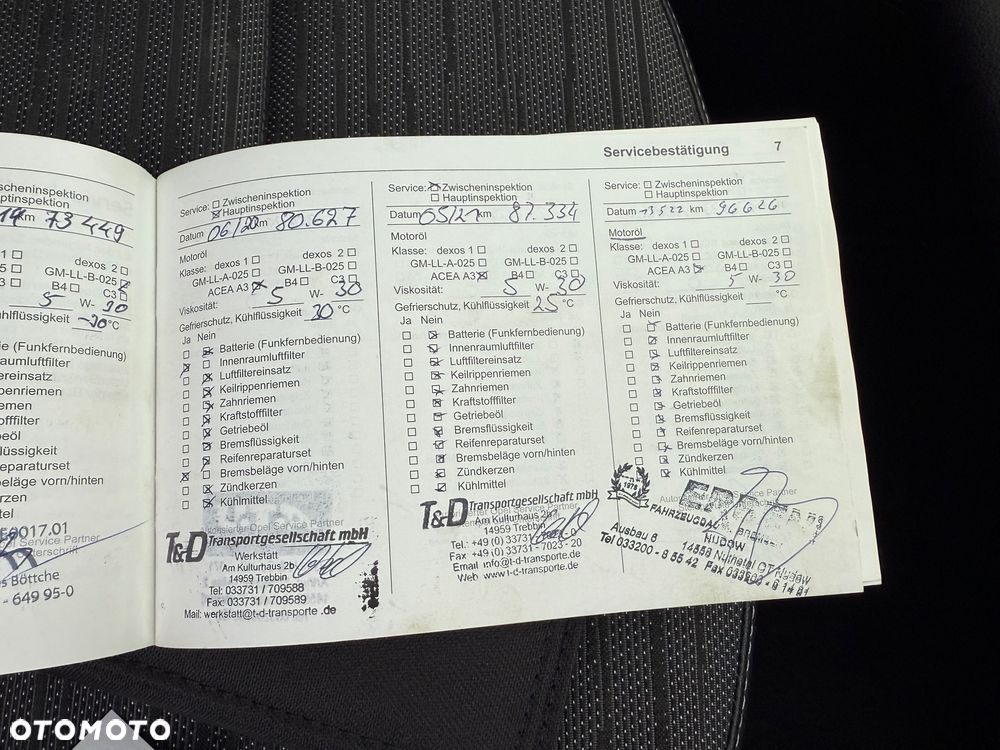 Servicebestätigung 7
scheninspektion
ptinspektion
19 km 73 449
1 ☐ dexos 2 ☐
5 ☐ GM-LL-B-025 ☒
3 ☐ B4 ☐ C3 ☐
5 W- 30
hlflüssigkeit -30 °C
ie (Funkfernbedienung)
raumluftfilter
ltereinsatz
penriemen
emen
offfilter
eöl
lüssigkeit
reparaturset
beläge vorn/hinten
erzen
ttel
E9017.01
el Service Partner
terschrift
s Böttche
- 649 95-0
Service: ☐ Zwischeninspektion
☒ Hauptinspektion
Datum 06/20 km 80.627
Motoröl
Klasse: dexos 1 ☐ dexos 2 ☐
GM-LL-A-025 ☐ GM-LL-B-025 ☐
ACEA A3 ☒ B4 ☐ C3 ☐
Viskosität: 5 W- 30
Gefrierschutz, Kühlflüssigkeit 30 °C
Ja Nein
☐ ☒ Batterie (Funkfernbedienung)
☒ ☐ Innenraumluftfilter
☐ ☒ Luftfiltereinsatz
☐ ☒ Keilrippenriemen
☐ ☒ Zahnriemen
☐ ☒ Kraftstofffilter
☐ ☒ Getriebeöl
☐ ☒ Bremsflüssigkeit
☐ ☒ Reifenreparaturset
☒ ☐ Bremsbeläge vorn/hinten
☐ ☒ Zündkerzen
☐ ☒ Kühlmittel
Opel Service Partner
T&D Transportgesellschaft mbH
Werkstatt
Am Kulturhaus 2b
14959 Trebbin
Tel: 033731 / 709588
Fax: 033731 / 709589
Mail: werkstatt@t-d-transporte .de
Service: ☒ Zwischeninspektion
☐ Hauptinspektion
Datum 05/21 km 87.334
Motoröl
Klasse: dexos 1 ☐ dexos 2 ☐
GM-LL-A-025 ☐ GM-LL-B-025 ☐
ACEA A3 ☒ B4 ☐ C3 ☐
Viskosität: 5 W- 30
Gefrierschutz, Kühlflüssigkeit 25 °C
Ja Nein
☐ ☒ Batterie (Funkfernbedienung)
☐ ☒ Innenraumluftfilter
☐ ☒ Luftfiltereinsatz
☐ ☒ Keilrippenriemen
☐ ☒ Zahnriemen
☐ ☒ Kraftstofffilter
☐ ☒ Getriebeöl
☐ ☒ Bremsflüssigkeit
☐ ☒ Reifenreparaturset
☐ ☒ Bremsbeläge vorn/hinten
☐ ☒ Zündkerzen
☐ ☒ Kühlmittel
T&D Transportgesellschaft mbH
Am Kulturhaus
14959 Trebbin
Tel.: +49 (0) 33731
Fax +49 (0) 33731 - 7023 - 20
Email info@t-d-transporte.de
Web www.t-d-transporte.de
Service: ☐ Zwischeninspektion
☐ Hauptinspektion
Datum 13 5 22 km 96626
Motoröl
Klasse: dexos 1 ☐ dexos 2 ☐
GM-LL-A-025 ☐ GM-LL-B-025 ☐
ACEA A3 ☒ B4 ☐ C3 ☐
Viskosität: 5 W- 30
Gefrierschutz, Kühlflüssigkeit °C
Ja Nein
☐ ☒ Batterie (Funkfernbedienung)
☐ ☒ Innenraumluftfilter
☐ ☒ Luftfiltereinsatz
☐ ☒ Keilrippenriemen
☐ ☒ Zahnriemen
☐ ☒ Kraftstofffilter
☐ ☒ Getriebeöl
☐ ☒ Bremsflüssigkeit
☐ ☒ Reifenreparaturset
☐ ☒ Bremsbeläge vorn/hinten
☐ ☒ Zündkerzen
☐ ☒ Kühlmittel
Service Partner
1978
FAHRZEUGBAU
NUDOW
Ausbau 6 14558 Nuthetal OT Nudow
Tel 033200 - 8 55 42 Fax
OTOMOTO